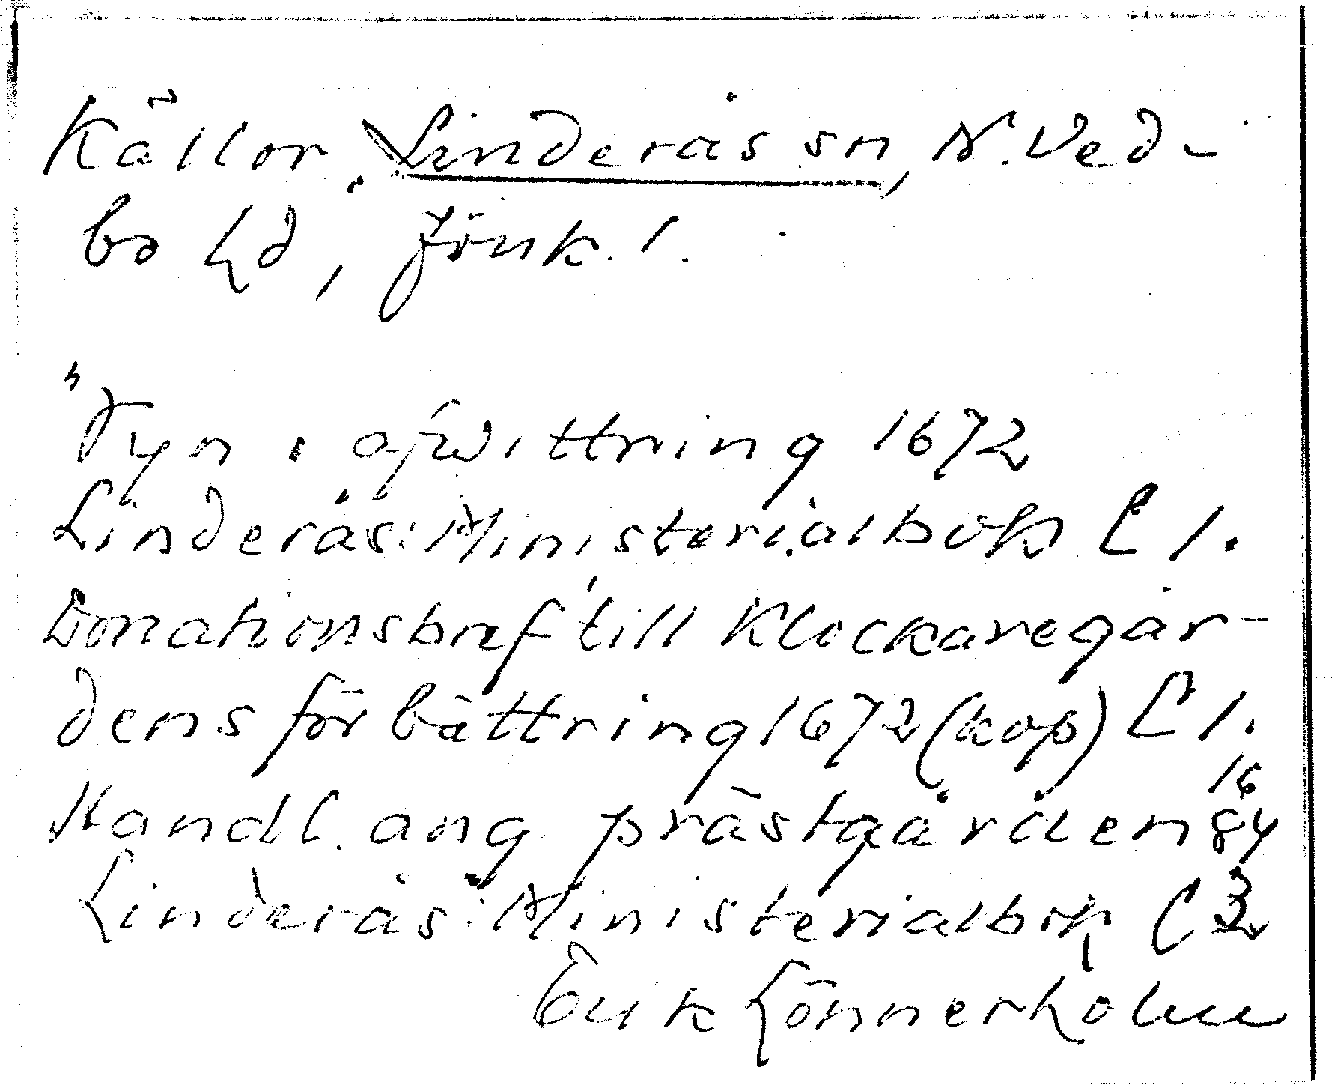 Källor, Linderås sn, N. Ved-
bo hd, Jönk. l.
"Syn i afwittring 1672
Linderås: Ministerialbok C 1.
Donationsbref till Klockaregår-
dens förbättring 1672 (kop) C 1.
Handl. ang prästgården 1684
Linderås: Ministerialbok C
Erik Lönnerholm